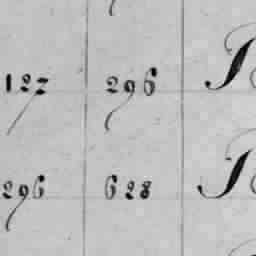 127 296
296 628